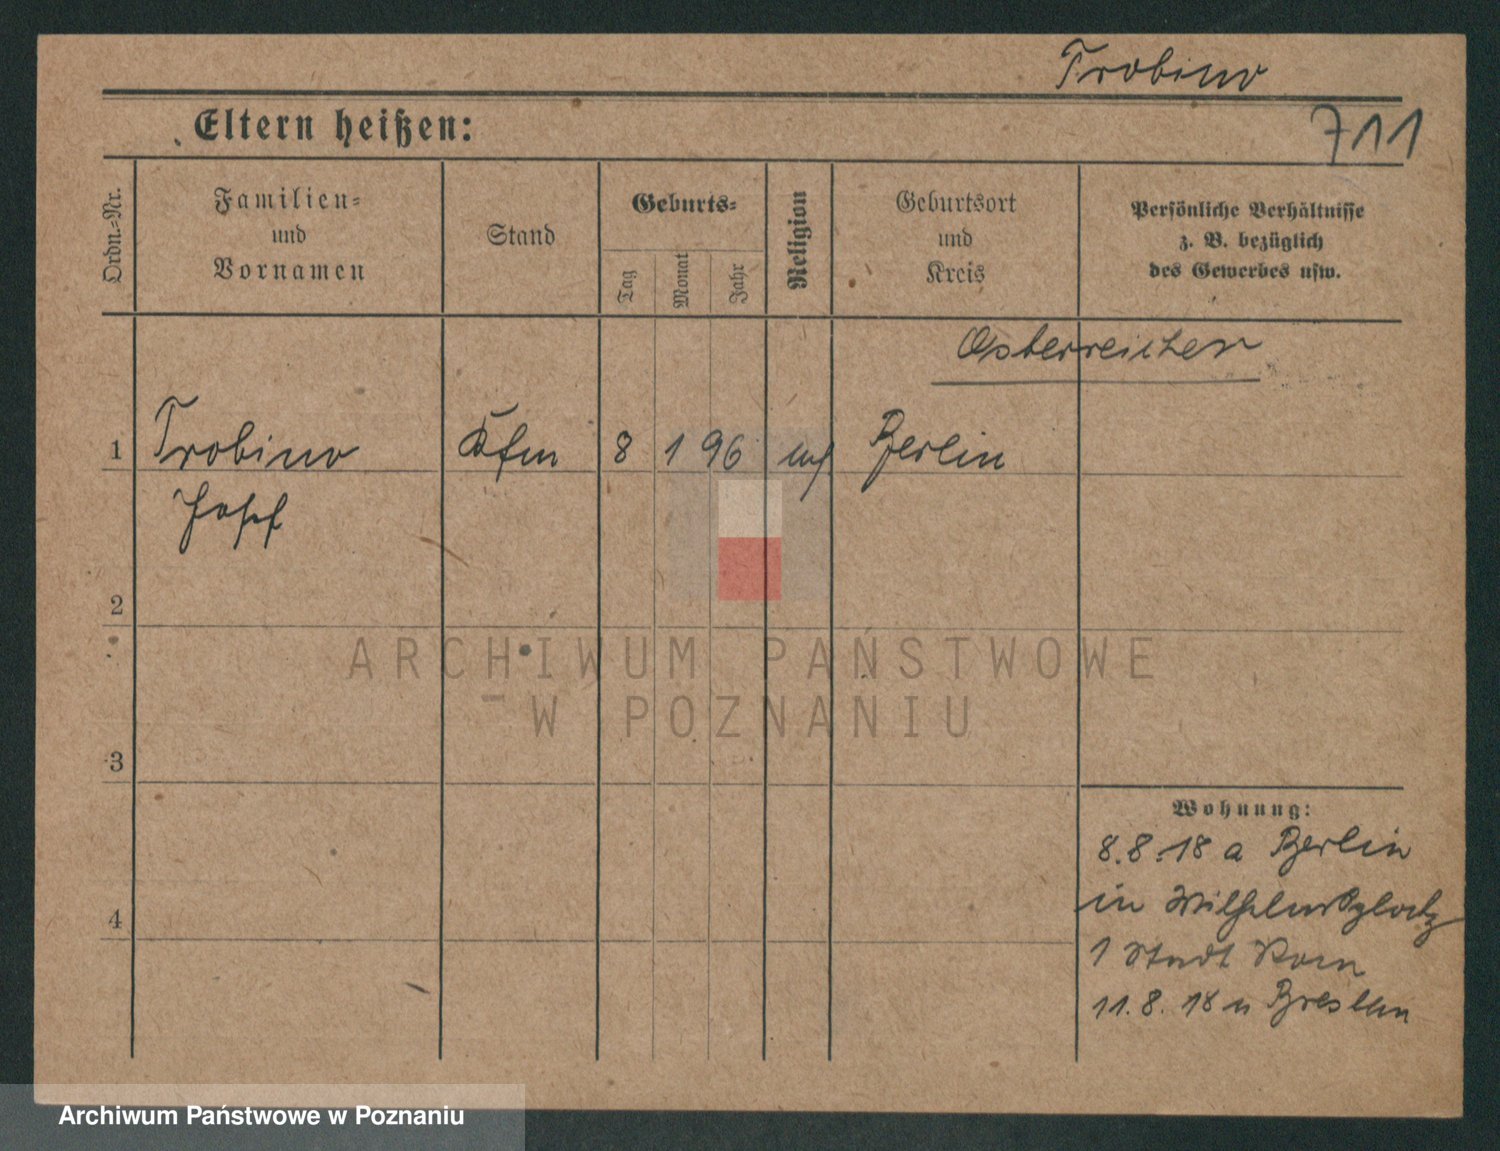 Trobino
Eltern heißen:
711
Ordn.-Nr.
Familien-
und
Vornamen
Stand
Geburts-
Tag
Monat
Jahr
Religion
Geburtsort
und
Kreis
Persönliche Verhältnisse
z. B. bezüglich
des Gewerbes usw.
Österreicher
1 Trobino Kfm 8 1 96 Berlin
Josef
2
3
4
Wohnung:
8.8.18 a Berlin
in Wilhelmsplatz
1 Stadt Rom
11.8.18 n Breslau
ARCHIWUM PAŃSTWOWE
W POZNANIU
Archiwum Państwowe w Poznaniu